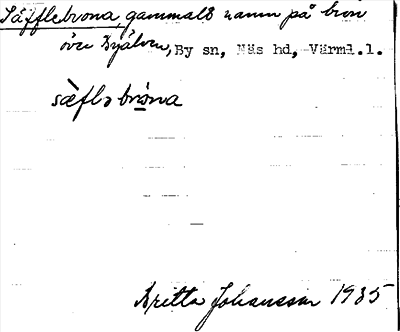 Säfflebrona, gammalt namn på bron
över Byälven, By sn, Näs hd, Värml.l.
sæ̀flə bròna
Britta Johansson 1935